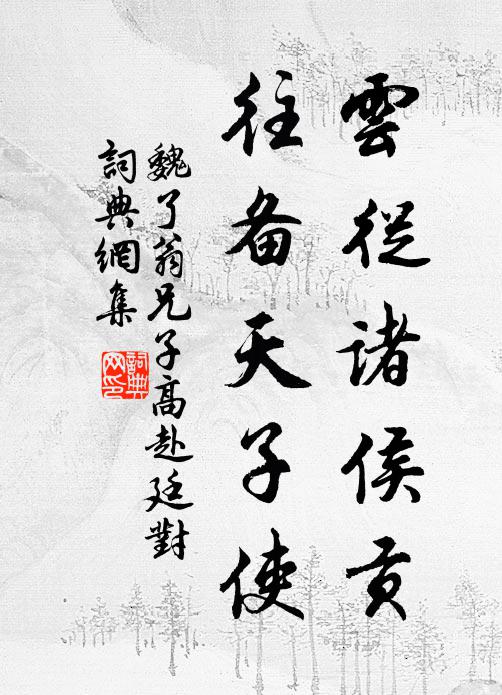 雲從諸侯貢
往备天子使
魏了翁兄子高赴廷對
詞典網集
詞典网印